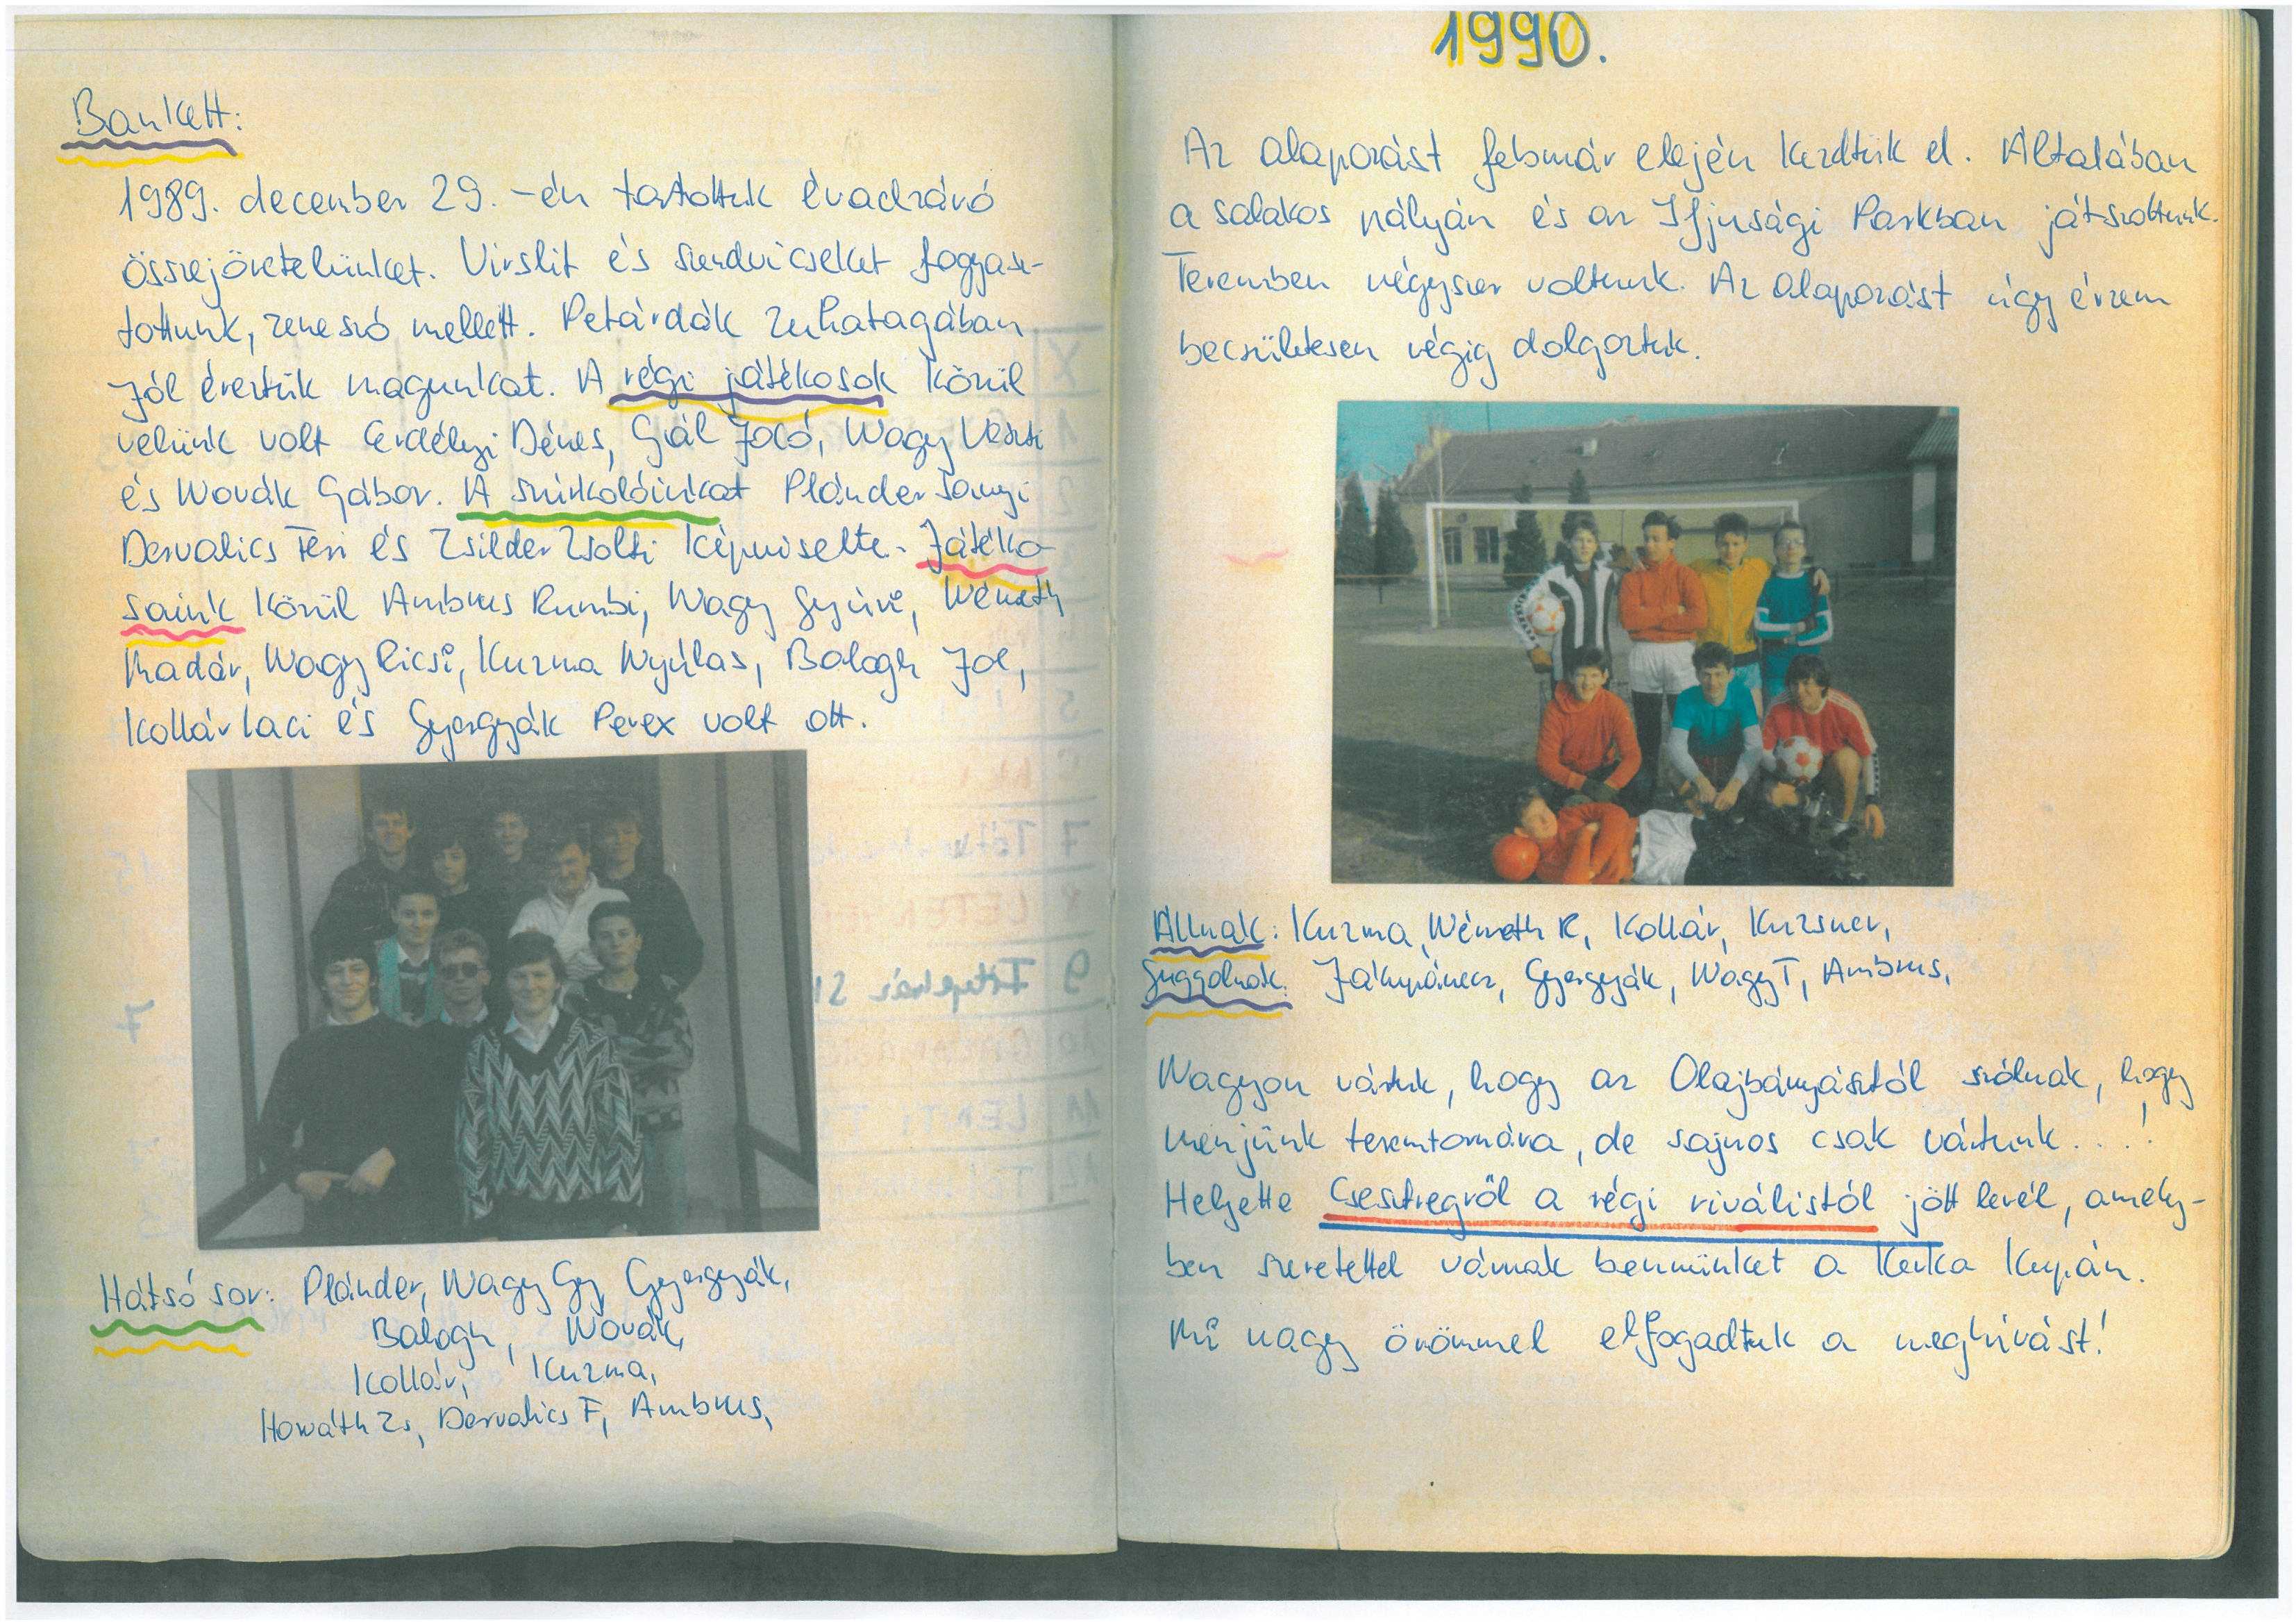 Bankett:
1989. december 29.-én tartottuk évadzáró
összejövetelünket. Virslit és szendvicseket fogyasz-
tottunk, zeneszó mellett. Petárdák zuhatagában
jól éreztük magunkat. A régi játékosok közül
velünk volt Erdélyi Dénes, Gál Jocó, Nagy
és Novák Gábor. A szurkolóinkat Plánder Sanyi
Dervalics Feri és Zsilder Zsolti képviselte. Játéko-
saink közül Ambrus Rumbi, Nagy Gyuri, Németh
Madár, Nagy Ricsi, Kuzma Nyúlas, Balogh Joe,
Kollár Laci és Gyergyák Perex volt ott.
Hátsó sor: Plánder, Nagy Gy, Gyergyák,
Balogh, Novák,
Kollár, Kuzma,
Horváth Zs, Dervalics F, Ambrus,
1990.
Az alapozást február elején kezdtük el. Általában
a salakos pályán és az Ifjusági Parkban játszottunk.
Teremben négyszer voltunk. Az alapozást úgy érzem
becsületesen végig dolgoztuk.
Állnak: Kuzma, Németh R, Kollár, Kuzsner,
Guggolnak: Zákupánecz, Gyergyák, Nagy T, Ambrus,
Nagyon vártuk, hogy az Olajbányásztól szólnak, hogy
menjünk teremtornára, de sajnos csak vártunk...!
Helyette Csesztregről a régi riválistól jött levél, amely-
ben szeretettel várnak bennünket a Kerka Kupán.
Mi nagy örömmel elfogadtuk a meghívást!